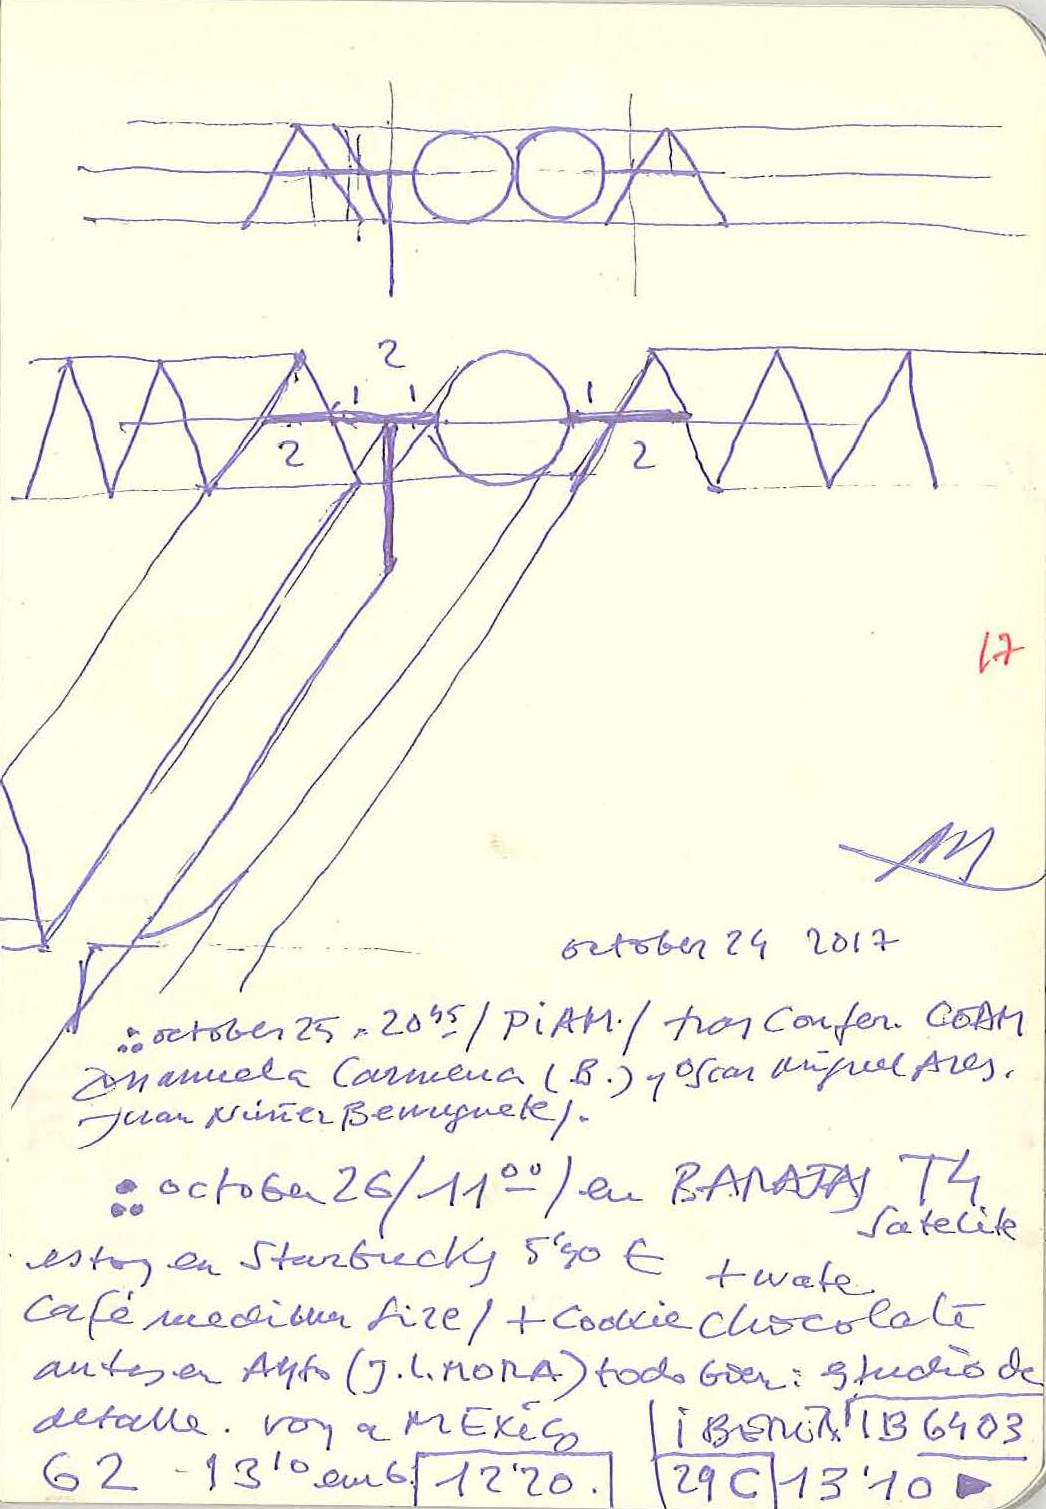 2
1 1 1
2 2
17
october 24 2017
october 25 . 20 45 / PiAM. / tras Confer. COAM
Manuela Carmena (B.) y Oscar Miguel Ares.
Juan Núñez Berruguete).
october 26/11 00 / en BARAJAS T4
satelite
estoy en Starbucks 5'90 € + wate
café medium size / + cookie chocolate
antes en Ayto (J.L.MORA) todo bien: estudio de
detalle. voy a MEXICO IBERIA IB 6403
G2 - 13'10 emb. 12'20. 29C 13'10